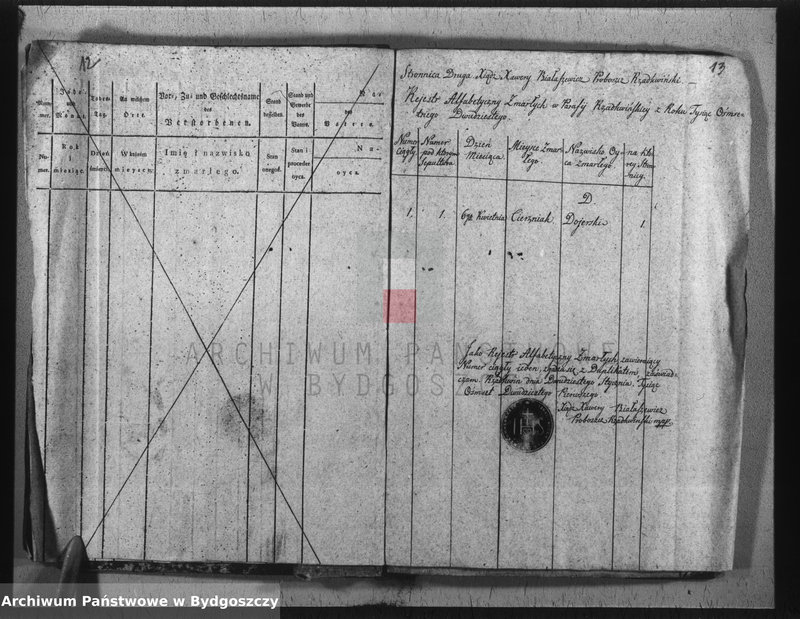 12
Num-mer.
Jahr. und Monat.
Todes-Tag.
An welchem Orte.
Vor-, Zu- und Geschlechtsname des Verstorbenen.
Stand desselben.
Stand und Gewerbe des Vaters.
Vor
des
Vaters.
Nu-mer.
Rok i miesiąc.
Dzień śmierci.
W którém mieyscu.
Imię i nazwisko zmarłego.
Stan onegoż.
Stan i proceder oyca.
Na
oyca.
13
Stronnica Druga Xiądz Xawery Białaszewicz Proboszcz Rządkwiński.
Rejestr Alfabetyczny Zmarłych w Parafij Rządkwińskiej z Roku Tysiąc Ośmse-
tnego Dwudziestego.
Numer ciągły
Numer pod którym Sepultura
Dzień Miesiąca.
Mieysce Zmarłego.
Nazwisko Oyca zmarłego.
na którey Stronnicy.
D.
1. 1. 6go Kwietnia Cierzniak. Dojerski 1
Jako Rejestr Alfabetyczny Zmarłych, zawieraiący
Numer ciągły ieden, zgadza się z Duplikatem, zaświad-
czam. Rządkwin dnia Dwudziestego Stycznia, Tysiąc
Ośmset Dwudziestego Pierwszego.
Xiądz Xawery Białaszewicz
Proboszcz Rządkwiński mpp
ARCHIWUM PAŃSTWOWE
W BYDGOSZCZY
Archiwum Państwowe w Bydgoszczy